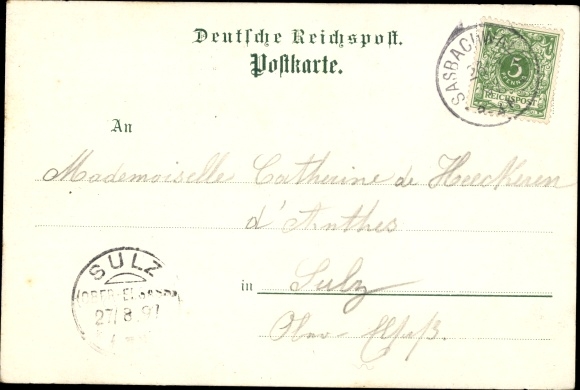 Deutsche Reichspost.
Postkarte.
SASBACHWA
5
PFENNIG
REICHSPOST
An
Mademoiselle Catherine de Heeckeren
d'Anthes
in Sulz
Ober-Elsaß.
SULZ
(OBER-ELSASS)
27/8.97